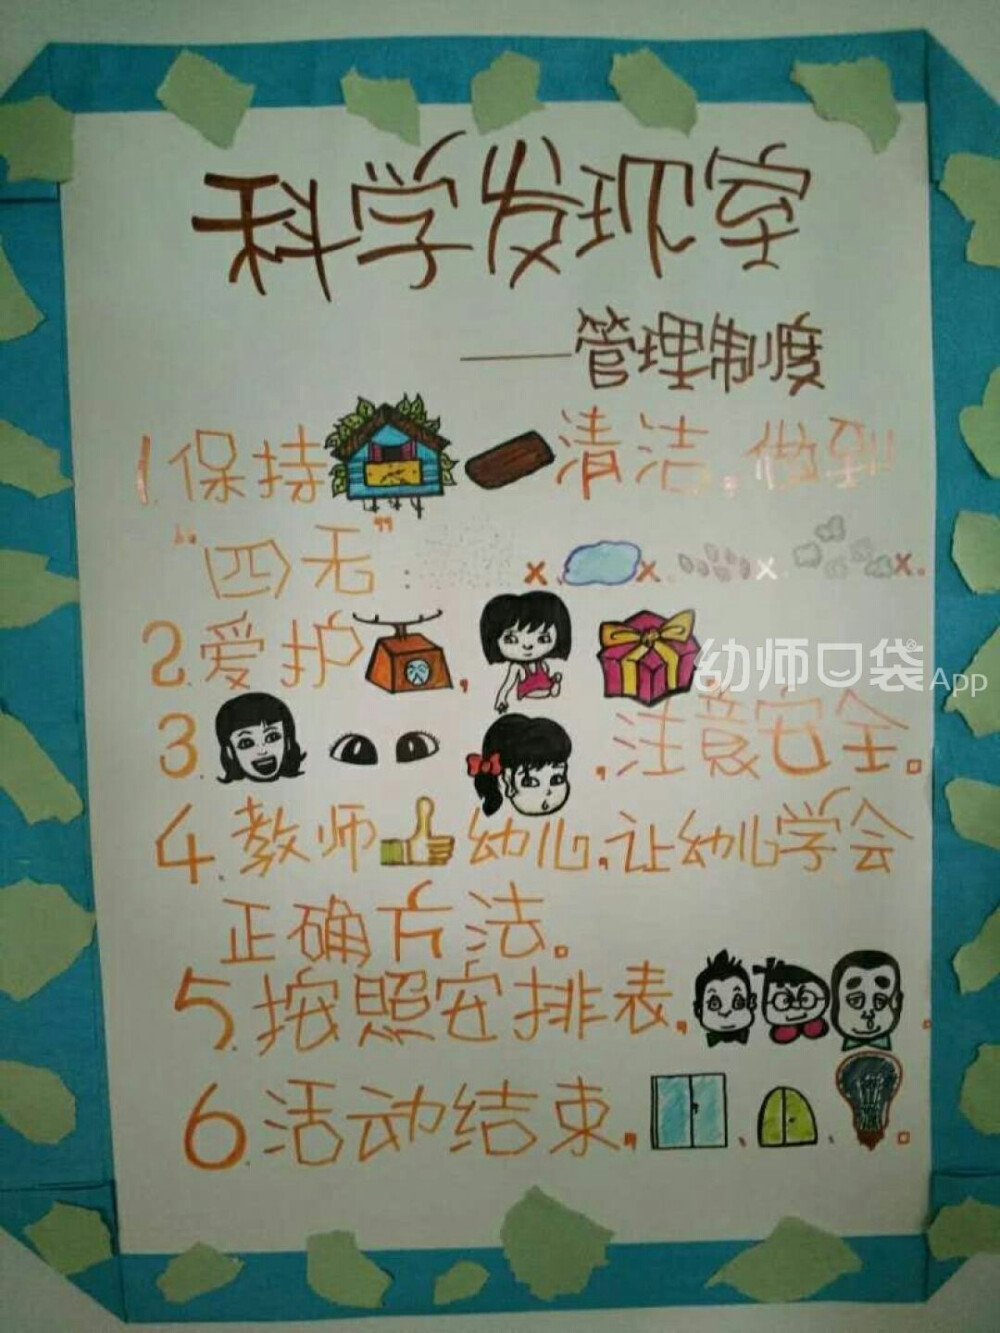 科学发现室
——管理制度
1.保持清洁,做到
“四无”:x、x、x、x.
2.爱护,
幼师口袋App
3.,注意安全。
4.教师幼儿,让幼儿学会
正确方法。
5.按照安排表,.
6.活动结束,、、。